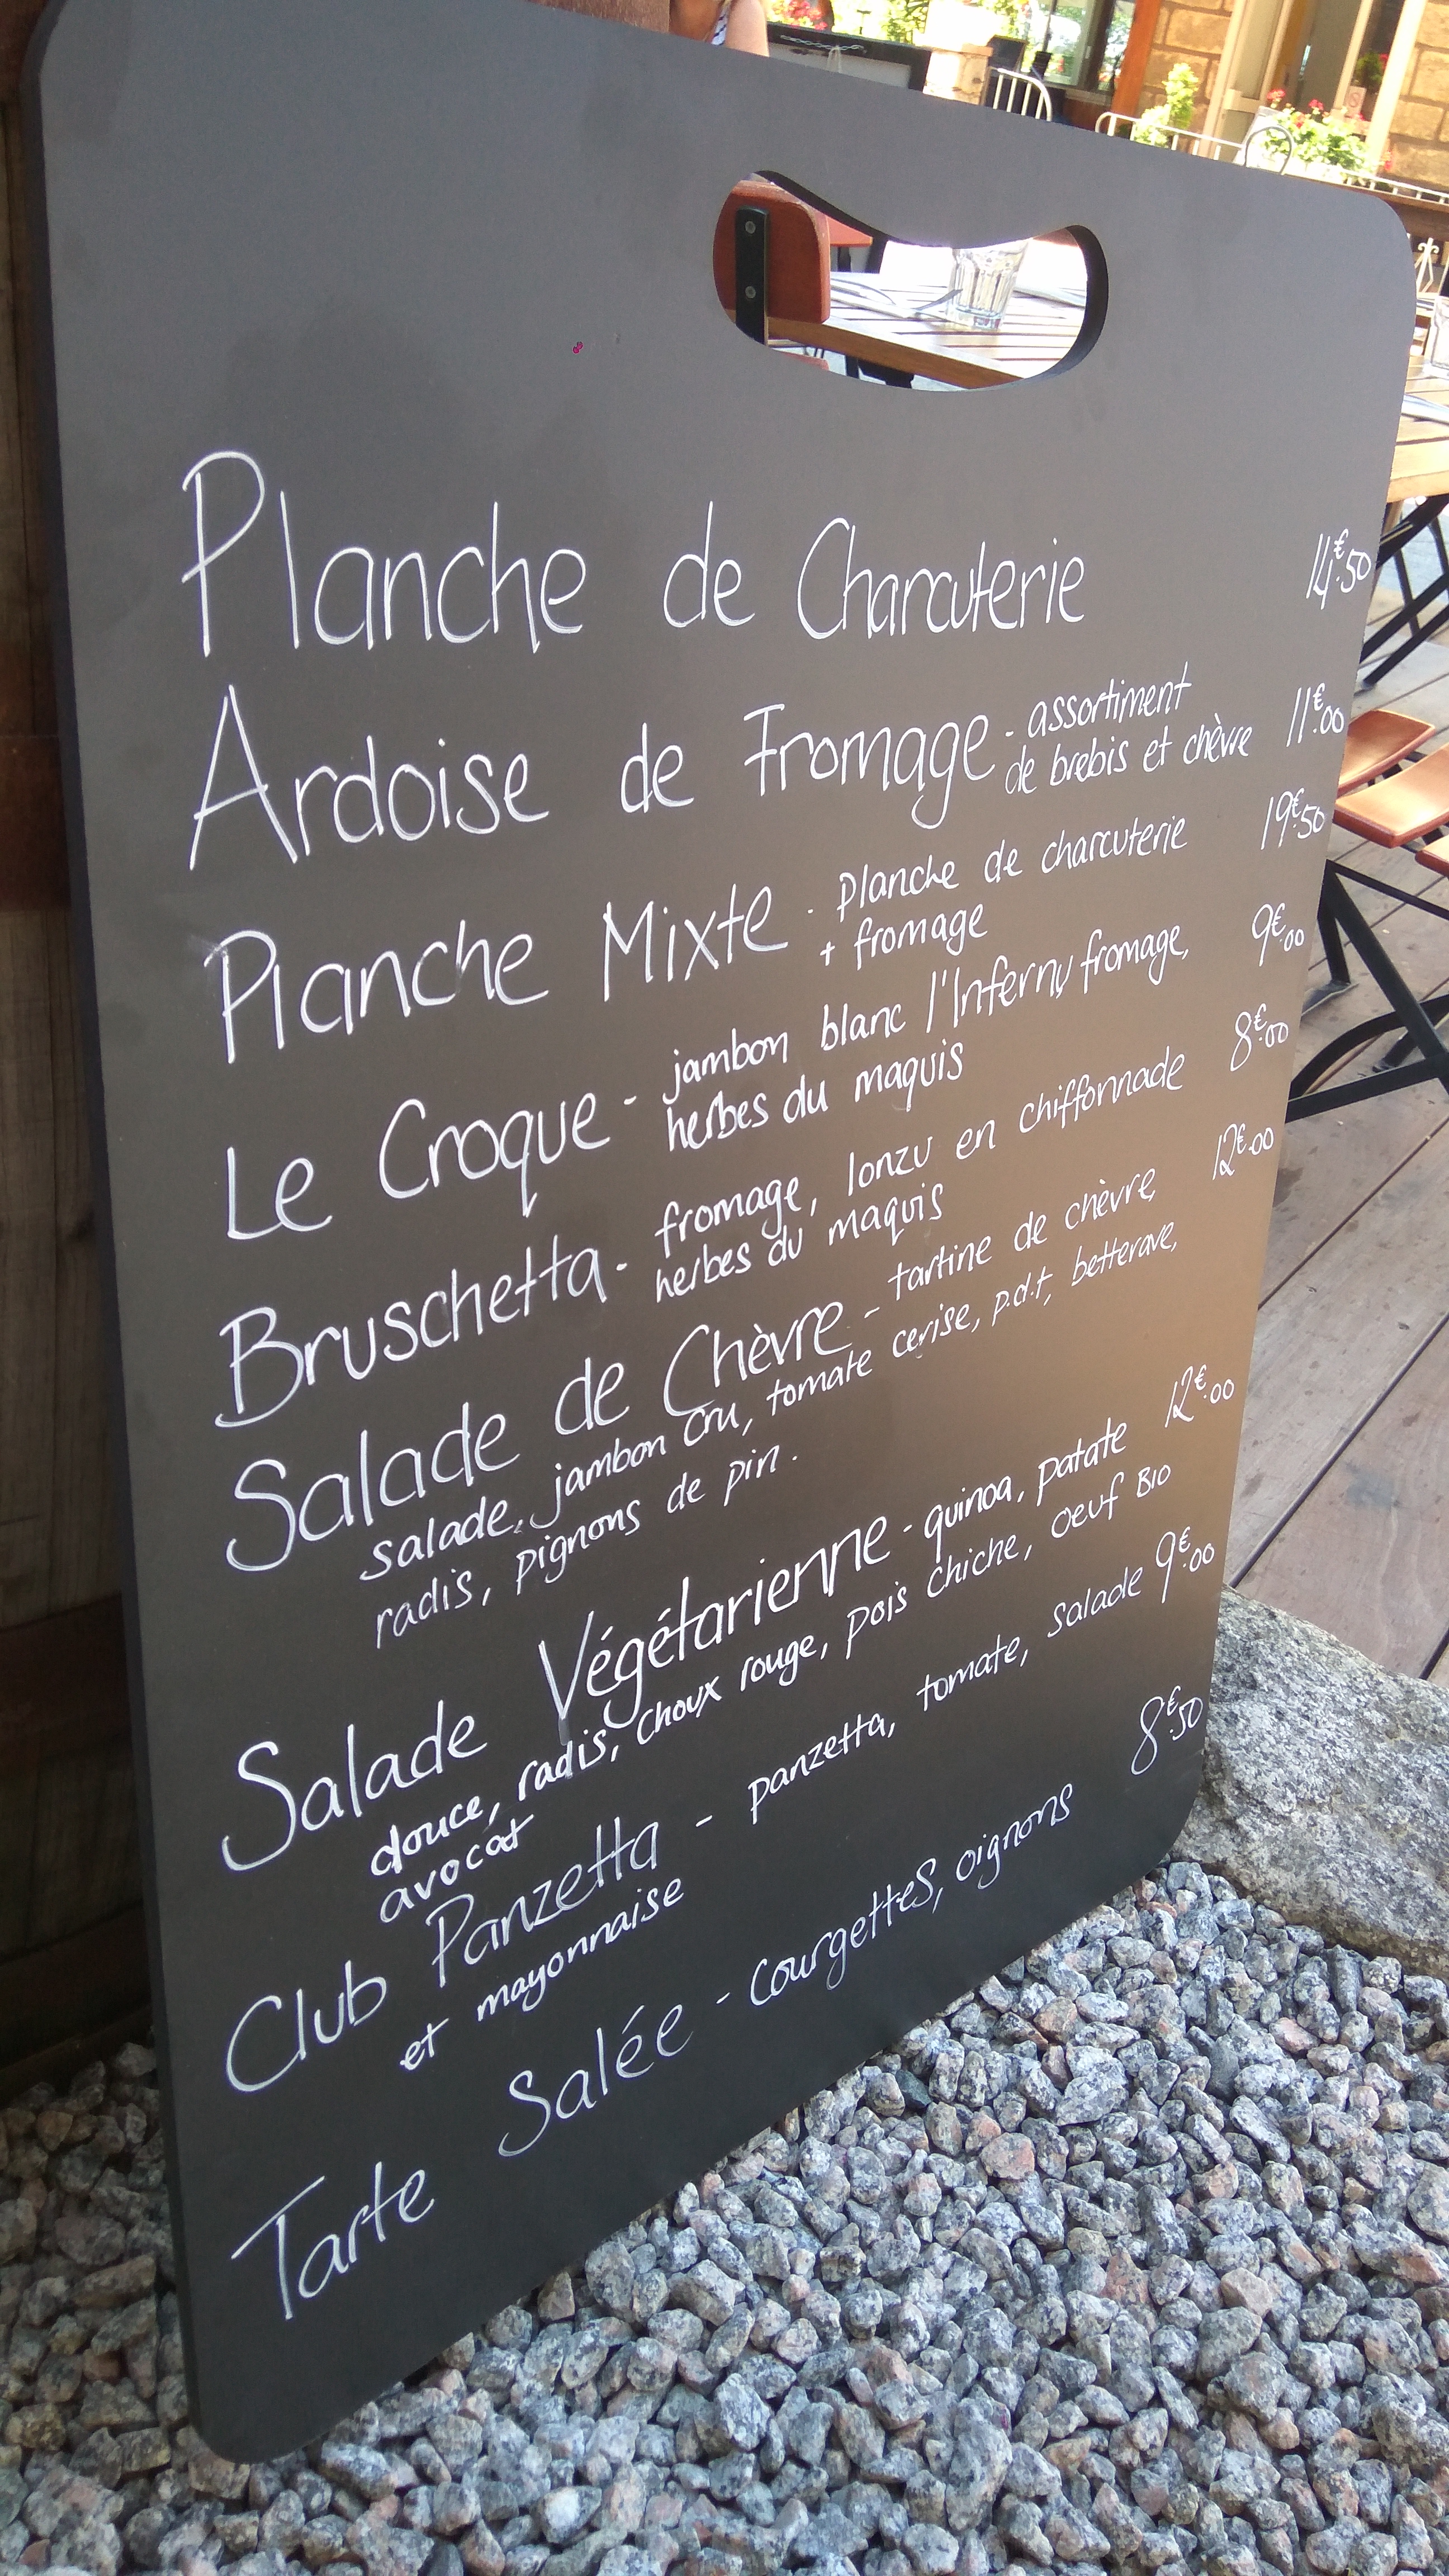 Planche de Charcuterie 14€.50
Ardoise de Fromage - assortiment
de brebis et chèvre 11€.00
Planche Mixte - planche de charcuterie 19€.50
+ fromage
Le Croque - jambon blanc l'Infernu fromage, 9€.00
herbes du maquis
Bruschetta - fromage, lonzu en chiffonnade 8€.00
herbes du maquis
Salade de Chèvre - tartine de chèvre, 12€.00
salade, jambon cru, tomate cerise, p.d.t, betterave,
radis, pignons de pin.
Salade Végétarienne - quinoa, patate 12€.00
douce, radis, choux rouge, pois chiche, oeuf BIO
avocat
Club Panzetta - panzetta, tomate, salade 9€.00
et mayonnaise
Tarte Salée - courgettes, oignons 8€.50